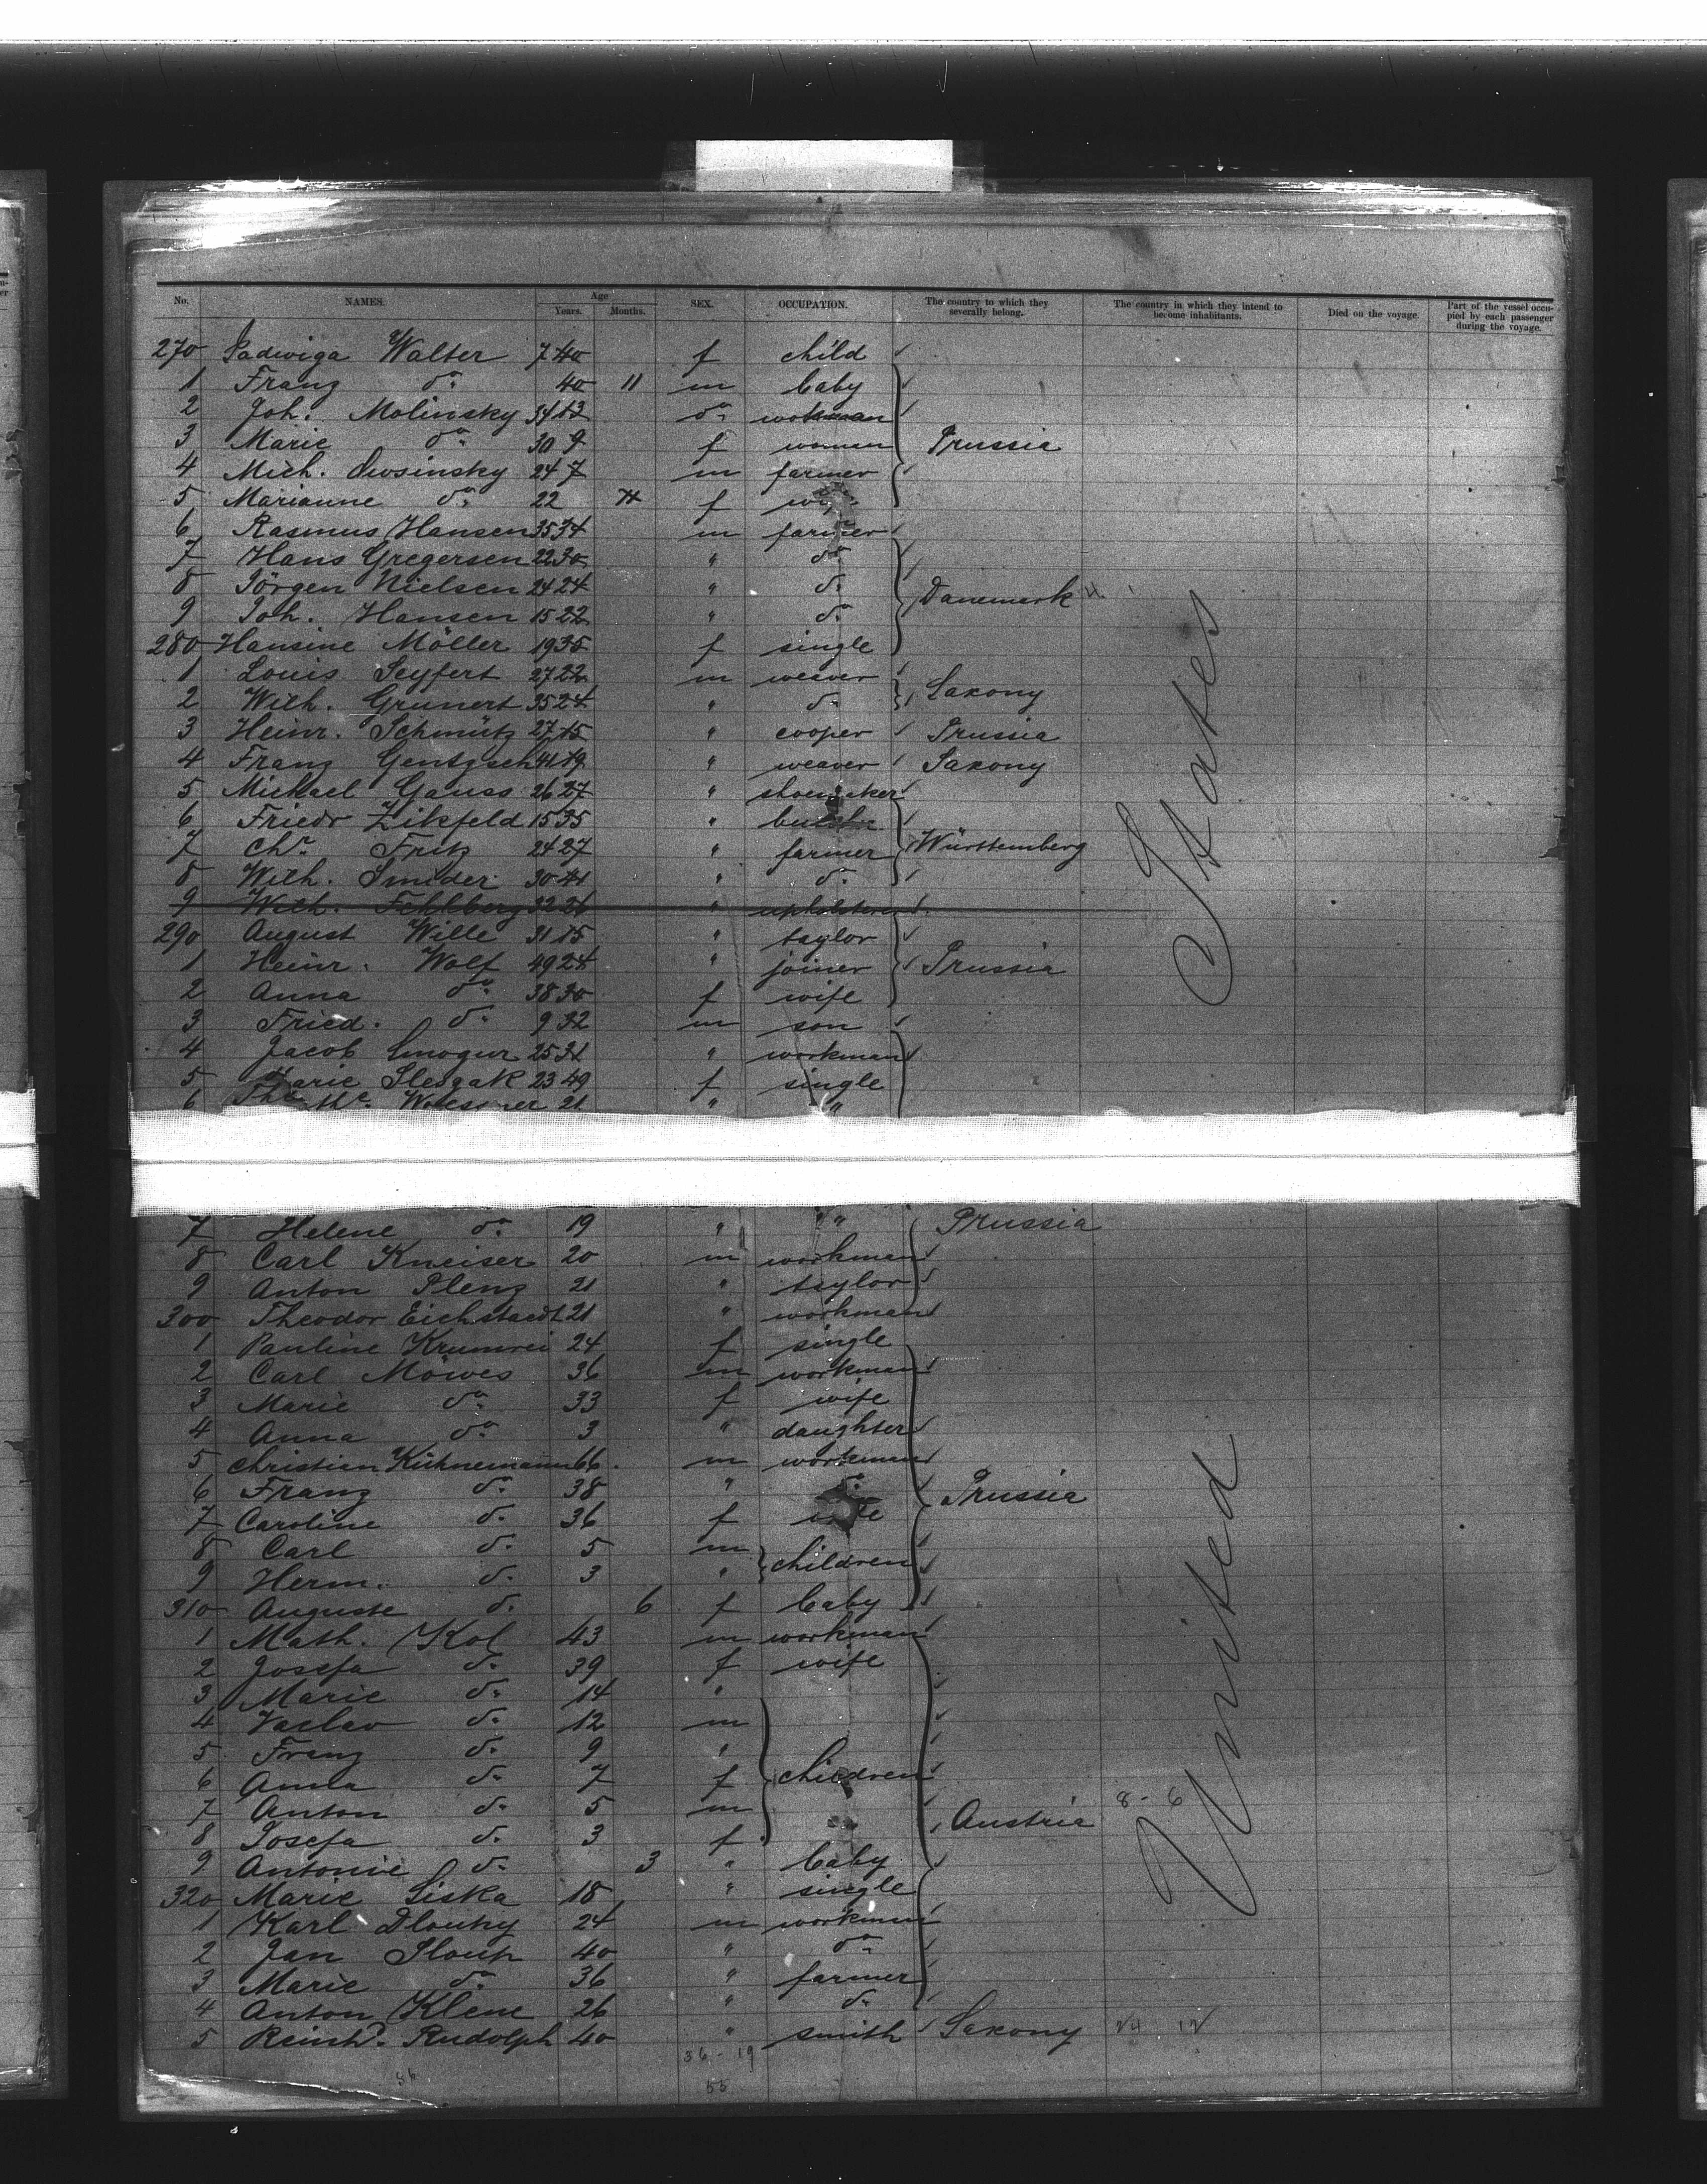 No. NAMES. Age Years. Months. SEX. OCCUPATION. The country to which they severally belong. The country in which they intend to become inhabitants. Died on the voyage. Part of the vessel occupied by each passenger during the voyage.
270 Hadwiga Walter 7 f child
1 Franz do 11 m baby
2 Joh. Molinsky 34 do workman
3 Marie do 30 f woman Prussia
4 Mich. 24 m farmer
5 Marianne do 22 f
6 Rasmus Hansen 35 m farmer
7 Hans Gregersen 22 " do
8 Jörgen Nielsen 24 " do Danemark
9 Joh. Hansen 15 " do
280 Hansine Möller 19 f single
1 Louis Seyfert 27 m weaver Saxony
2 Wilh. Grunert 35 " do
3 Heinr. Schmütz 27 " cooper Prussia
4 Franz Gentzsch 41 " weaver Saxony
5 Michael Gauss 26 " shoemaker
6 Friedr Zikfeld 15 "
7 Chr. Fritz 24 " farmer Württemberg
8 Wilh. Smider 30 " do
9 Wilh. Fehlberg 32 " upholsterer
290 August Wille 31 " taylor
1 Heinr. Wolf 49 " joiner Prussia
2 Anna do 38 f wife
3 Fried. do 9 m son
4 Jacob Smogur 25 " workman
5 Marie Slesgak 23 f single
6 21 " "
7 Helene do 19 " " Prussia
8 Carl Kneiser 20 m workman
9 Anton Plenz 21 " taylor
300 Theodor Eichstaedt 21 " workman
1 Pauline Krumrei 24 f single
2 Carl Möwes 36 m workman
3 Marie do 33 f wife
4 Anna do 3 " daughter
5 Christian Kühnemann 66 m workman
6 Franz do 38 " do Prussia
7 Caroline do 36 f wife
8 Carl do 5 m children
9 Herm. do 3 "
310 Auguste do 6 f baby
1 Math. Kol 43 m workman
2 Josefa do 39 f wife
3 Marie do 14 "
4 Vaclav do 12 m
5 Franz do 9 "
6 Anna do 7 f children
7 Anton do 5 m Austria 8 - 6
8 Josefa do 3 f
9 Antonie do 3 " baby
320 Marie Liska 18 " single
1 Karl Dlouhy 24 m workman
2 Jan Sloup 40 " do
3 Marie do 36 " farmer
4 Anton Klene 26 " do
5 Reinh. Rudolph 40 " smith Saxony
36 - 19
55
United States